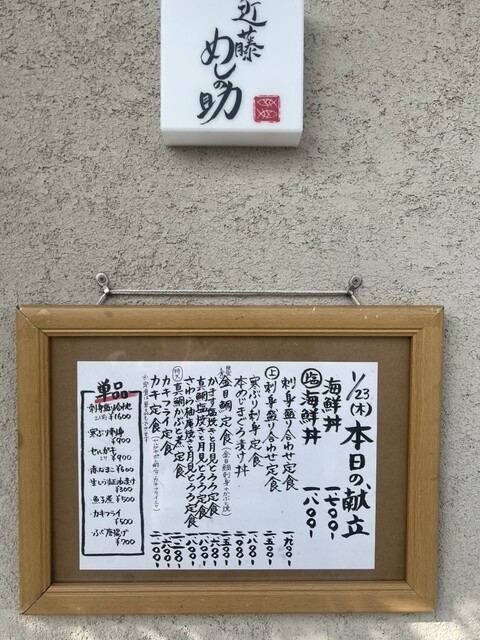 近藤
めしの助
1/23(木) 本日の献立
海鮮丼 一七〇〇-
海鮮丼 一八〇〇-
刺身盛り合わせ定食 一九〇〇-
上 刺身盛り合わせ定食 二五〇〇-
寒ぶり刺身定食 一八〇〇-
本のじまぐろ漬け丼
金目鯛定食
かます塩焼きと月見とろろ定食
真鯛塩焼きと月見とろろ定食
さわら柚庵焼きと月見とろろ定食
特大 真鯛かぶと煮定食
カキフライ定食
カキ定食
単品
刺身盛り合わせ
¥1600
寒ぶり刺身
¥900
せんカキ
¥900
赤なまこ ¥600
¥300
魚子煮 ¥500
カキフライ
¥500
ふぐ唐揚げ
¥700